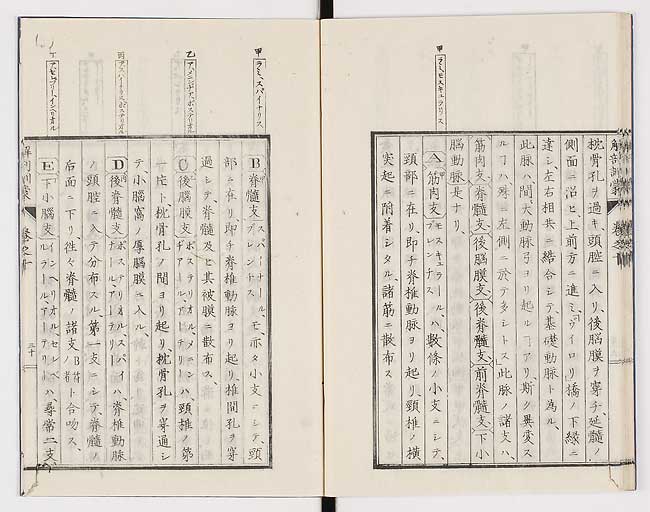 甲 ラミ、モスキュラリス
枕骨孔ヲ過キ頭腔ニ入リ、後脳膜ヲ穿チ、延髓ノ
側面ニ沿ヒ、上前方ニ進ミ、ヴイロリ橋ノ下縁ニ
達シ、左右相共ニ結合シテ、基礎動脉ト為ル、
此脉ハ間大動脉弓ヨリ起ルヿアリ、斯ク異変ス
ルヿハ殊ニ左側ニ於テ多シトス、此脉ノ諸支ハ、
筋肉支、脊髓支、後脳膜支、後脊髓支、前脊髓支、下小
脳動脉是ナリ、
A 筋肉支 モスキュラール、ブレンチスハ、数條ノ小支ニシテ、
頸部ニ在リ、即チ脊椎動脉ヨリ起リ、頸椎ノ横
突起ニ附着シタル、諸筋ニ散布ス
解剖訓蒙
甲 ラミ、スパイナリス
乙 ア、メニンヂア、ポステリオル
丙 ア、スパイナリス、ポステリオル
丁 ア、セレブリー、インヘリオル
B 脊髓支 スパイナール、ブレンチス モ、亦タ小支ニシテ、頸
部ニ在リ、即チ脊椎動脉ヨリ起リ、椎間孔ヲ穿
過シテ、脊髓及ヒ其被膜ニ散布ス、
C 後脳膜支 ポステリオル、メニンヂアール、アーテリーハ、頸椎ノ第
一庄ト枕骨孔ノ間ヨリ起リ、枕骨孔ヲ穿通シ
テ、小脳窩ノ厚脳膜ニ入ル、
D 後脊髓支 ポステリオルスパイナール、アーテリーハ、脊椎動脉
ノ頭腔ニ入テ分布スル、第一支ニシテ、脊髓ノ
后面ニ下リ、往々脊髓ノ諸支B符ト合吻ス、
E 下小脳支 インヘリオルセレブラール、アーテリーハ、尋常二支、
解剖訓蒙 巻之十
三十